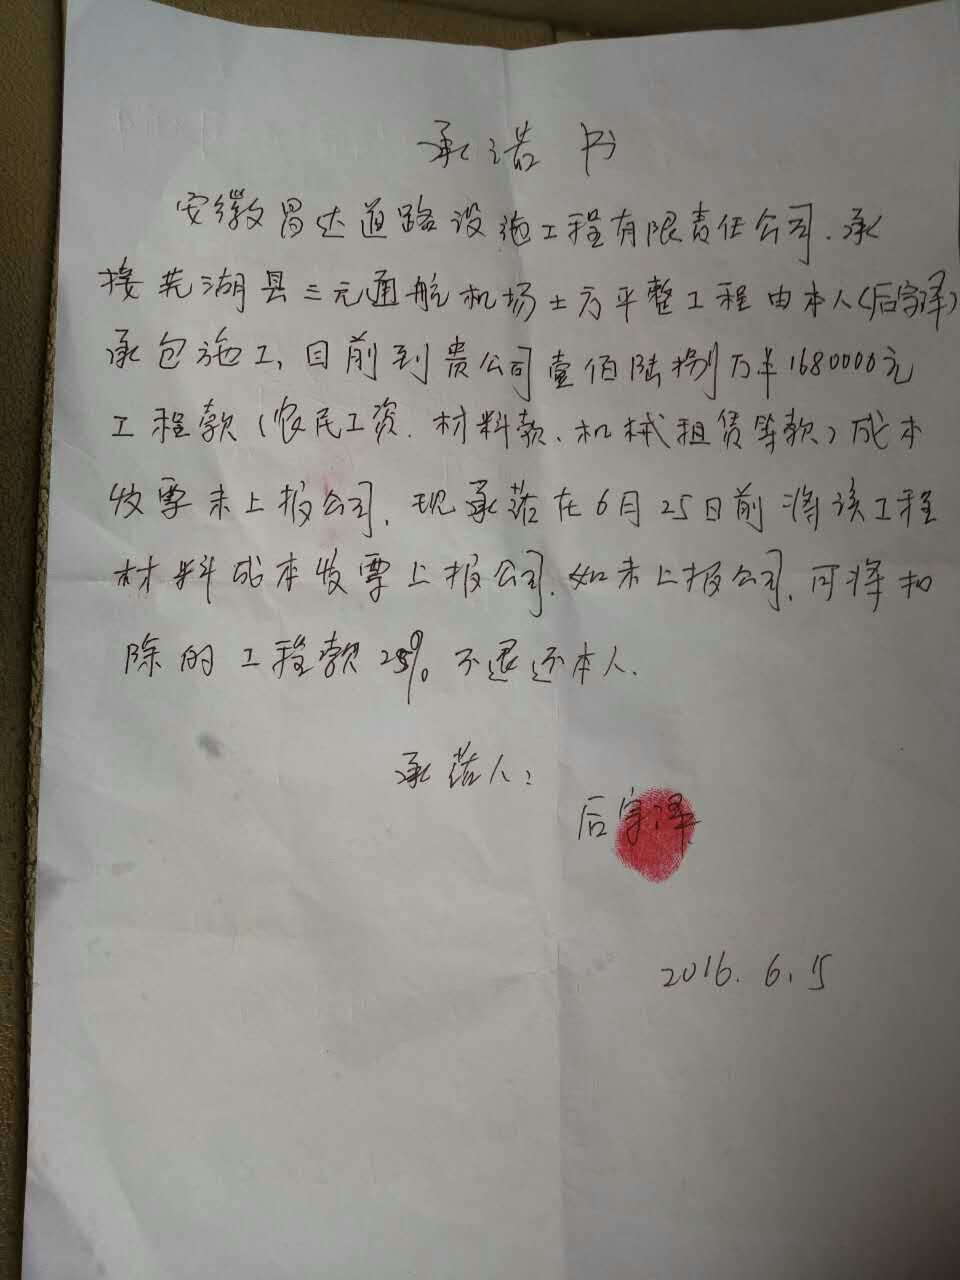 承诺书
安徽昌达道路设施工程有限责任公司.承
接芜湖县三元通航机场土方平整工程由本人(后宇泽)
承包施工,目前到贵公司壹佰陆捌万羊1680000元
工程款(农民工资.材料款、机械租赁等款)成本
发票未上报公司,现承诺在6月25日前将该工程
材料成本发票上报公司.如未上报公司,可将扣
除的工程款25%不退还本人.
承诺人:
后宇泽
2016.6.15